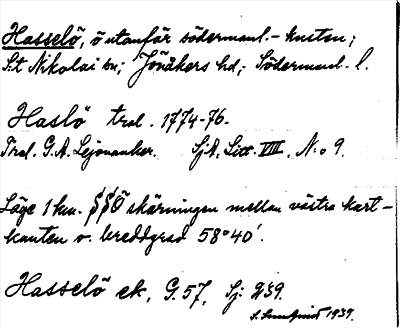 Hasselö, ö utanför södermanl.-kusten;
S:t Nikolai sn; Jönåkers hd; Södermanl. l.
Haslö tral. 1774-76.
Tral. G.A. Lejonanker. SjA. Litt. VIII. N:o 9.
Läge 1 km. SSÖ skärningen mellan västra kart-
kanten o. breddgrad 58°40'.
Hasselö ek. G.57, Sj: 239.
1939.